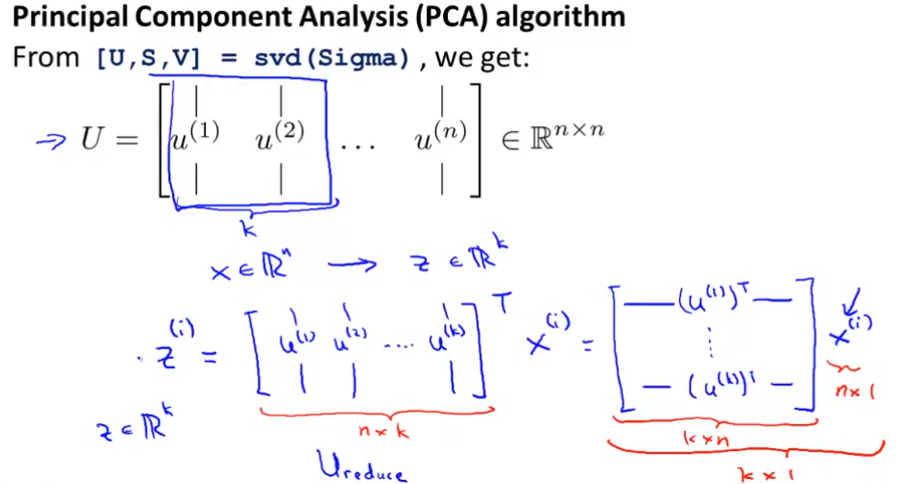 Principal Component Analysis (PCA) algorithm
From [U,S,V] = svd(Sigma) , we get:
→ U = [ u^(1) u^(2) ... u^(n) ] ∈ ℝ^{n×n}
k
x ∈ ℝ^n → z ∈ ℝ^k
z^(i) = [ u^(1) u^(2) .... u^(k) ]^T x^(i) = [ —(u^(1))^T— ⋮ —(u^(k))^T— ] x^(i)
z ∈ ℝ^k
n × k
k × n
n × 1
U reduce
k × 1